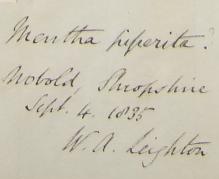 Mentha piperita?
Nobold, Shropshire
Sept. 4. 1835
W. A. Leighton